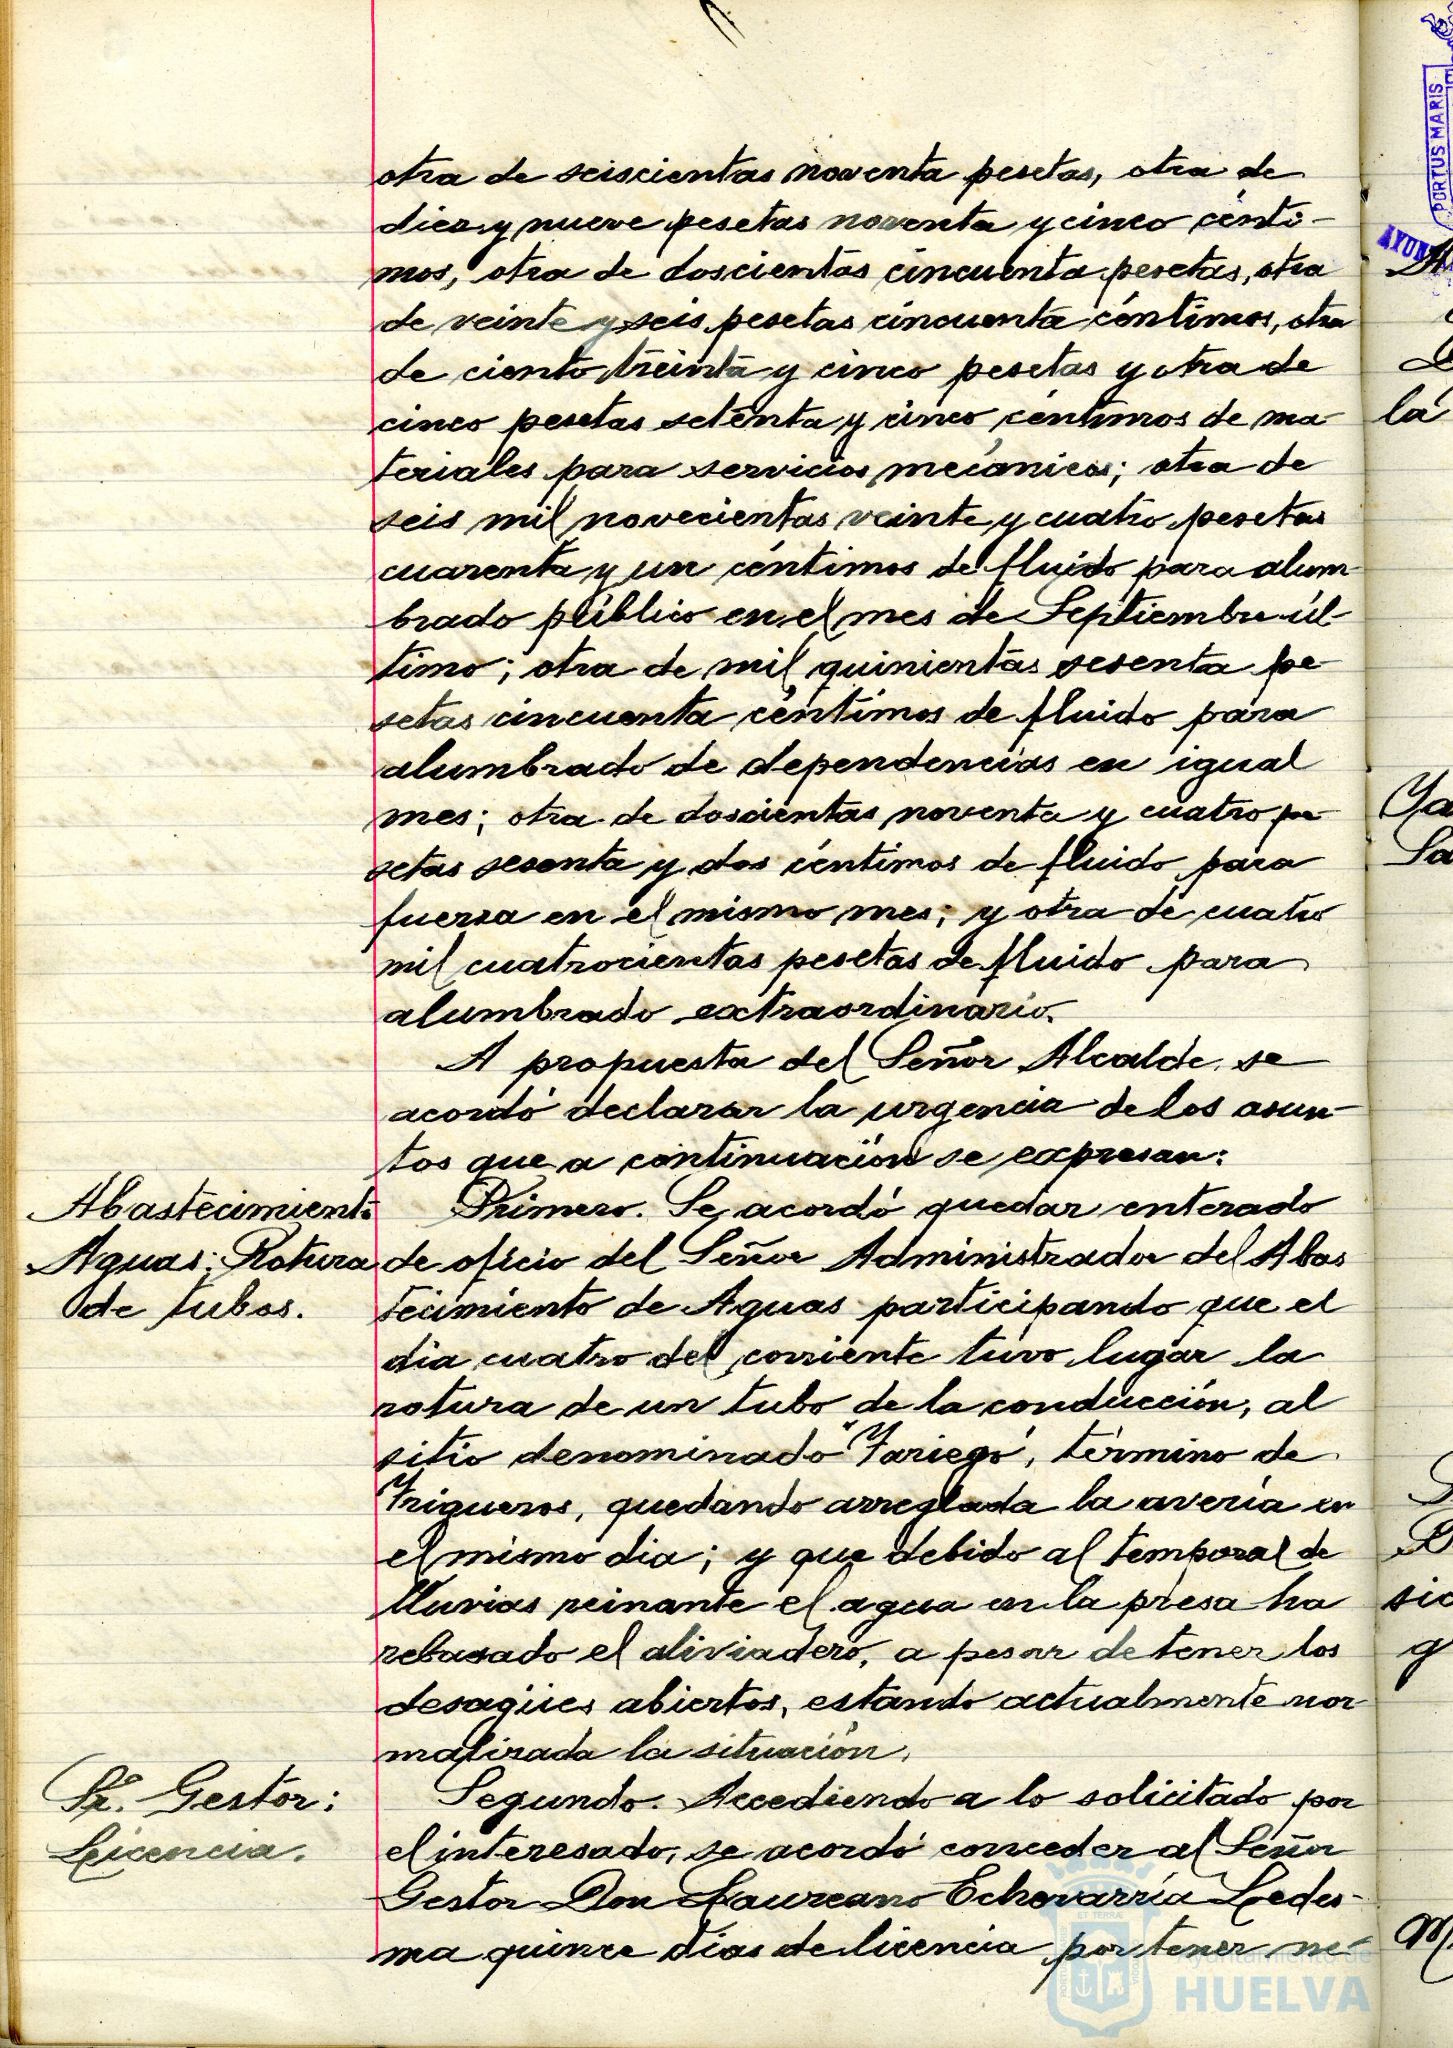 otra de seiscientas noventa pesetas, otra de
diez y nueve pesetas noventa y cinco cénti-
mos, otra de doscientas cincuenta pesetas, otra
de veinte y seis pesetas cincuenta céntimos, otra
de ciento treinta y cinco pesetas y otra de
cinco pesetas setenta y cinco céntimos de ma-
teriales para servicios mecánicos; otra de
seis mil novecientas veinte y cuatro pesetas
cuarenta y un céntimos de fluido para alum-
brado público en el mes de Septiembre úl-
timo; otra de mil quinientas sesenta pe-
setas cincuenta céntimos de fluido para
alumbrado de dependencias en igual
mes; otra de doscientas noventa y cuatro pe-
setas sesenta y dos céntimos de fluido para
fuerza en el mismo mes; y otra de cuatro
mil cuatrocientas pesetas de fluido para
alumbrado extraordinario.
A propuesta del Señor Alcalde se
acordó declarar la urgencia de los asun-
tos que a continuación se expresan:
Abastecimiento
Aguas: Rotura
de tubos.
Primero. Se acordó quedar enterado
de oficio del Señor Administrador del Abas
tecimiento de Aguas participando que el
dia cuatro del corriente tuvo lugar la
rotura de un tubo de la conducción, al
sitio denominado "Fariego", término de
Trigueros, quedando arreglada la avería en
el mismo dia; y que debido al temporal de
lluvias reinante el agua en la presa ha
rebasado el aliviadero, a pesar de tener los
desagües abiertos, estando actualmente nor-
malizada la situación.
Sr. Gestor:
Licencia.
Segundo. Accediendo a lo solicitado por
el interesado, se acordó conceder al Señor
Gestor Don Laureano Echevarría Ledes-
ma quince dias de licencia por tener ne-
PORTUS MARIS
la
Ayuntamiento de
HUELVA